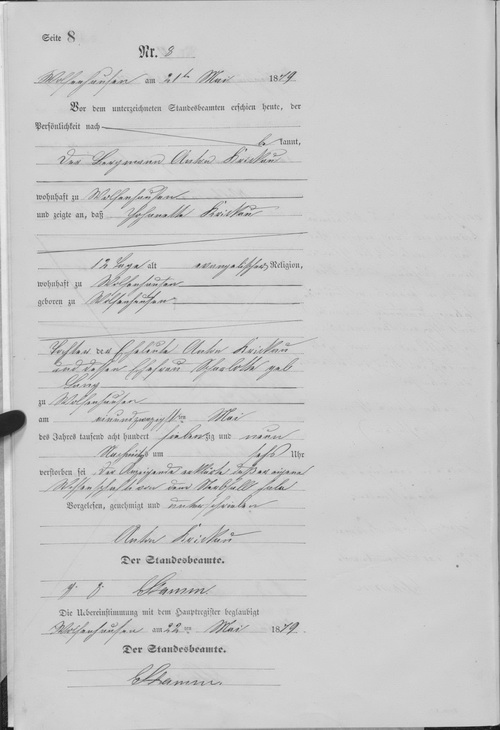 Seite 8
Nr. 8
Wolfenhausen am 21ten Mai 1879
Vor dem unterzeichneten Standesbeamten erschien heute, der
Persönlichkeit nach
bekannt,
der Bergmann Anton Krickau
wohnhaft zu Wolfenhausen
und zeigte an, daß Johanette Krickau
12 Tage alt evangelischer Religion,
wohnhaft zu Wolfenhausen
geboren zu Wolfenhausen
Tochter der Eheleute Anton Krickau
und dessen Ehefrau Charlotte geb
zu Wolfenhausen
am einundzwanzigsten Mai
des Jahres tausend acht hundert siebenzig und neun
Nachmittags um sechs Uhr
verstorben sei der Anzeigende erklärte daß er eigene
Wissenschaft von dem Sterbfall habe
Vorgelesen, genehmigt und unterschrieben
Anton Krickau
Der Standesbeamte.
Stamm
Die Uebereinstimmung mit dem Hauptregister beglaubigt
Wolfenhausen am 22ten Mai 1879.
Der Standesbeamte.
Stamm